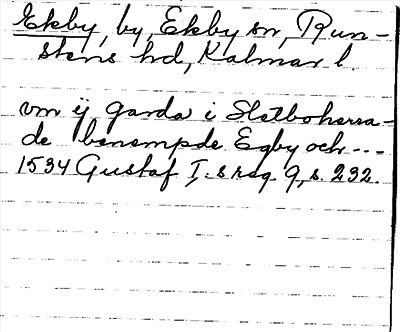 Ekby, by, Ekby sn, Run-
stens hd, Kalmar l.
vm ij garda i Sletbohærra-
de benempde Egby och ---
1534 Gustaf I:s reg. 9, s. 232.